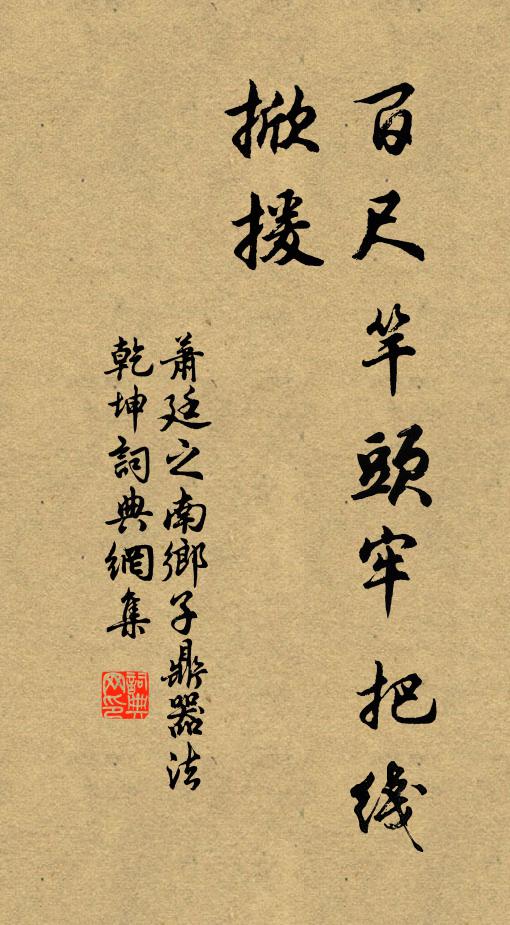 百尺竿頭牢把线
掀援
萧廷之南鄉子鼎器法
乾坤詞典網集
詞典
网印